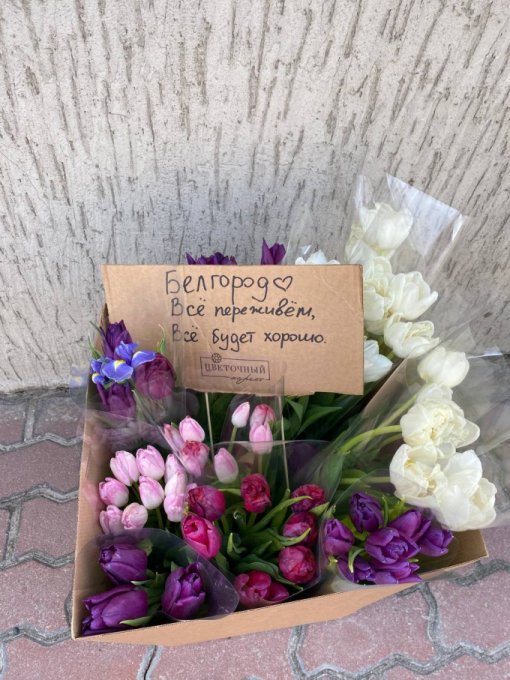 Белгород♡
Всё переживём,
Всё будет хорошо.
ЦВЕТОЧНЫЙ